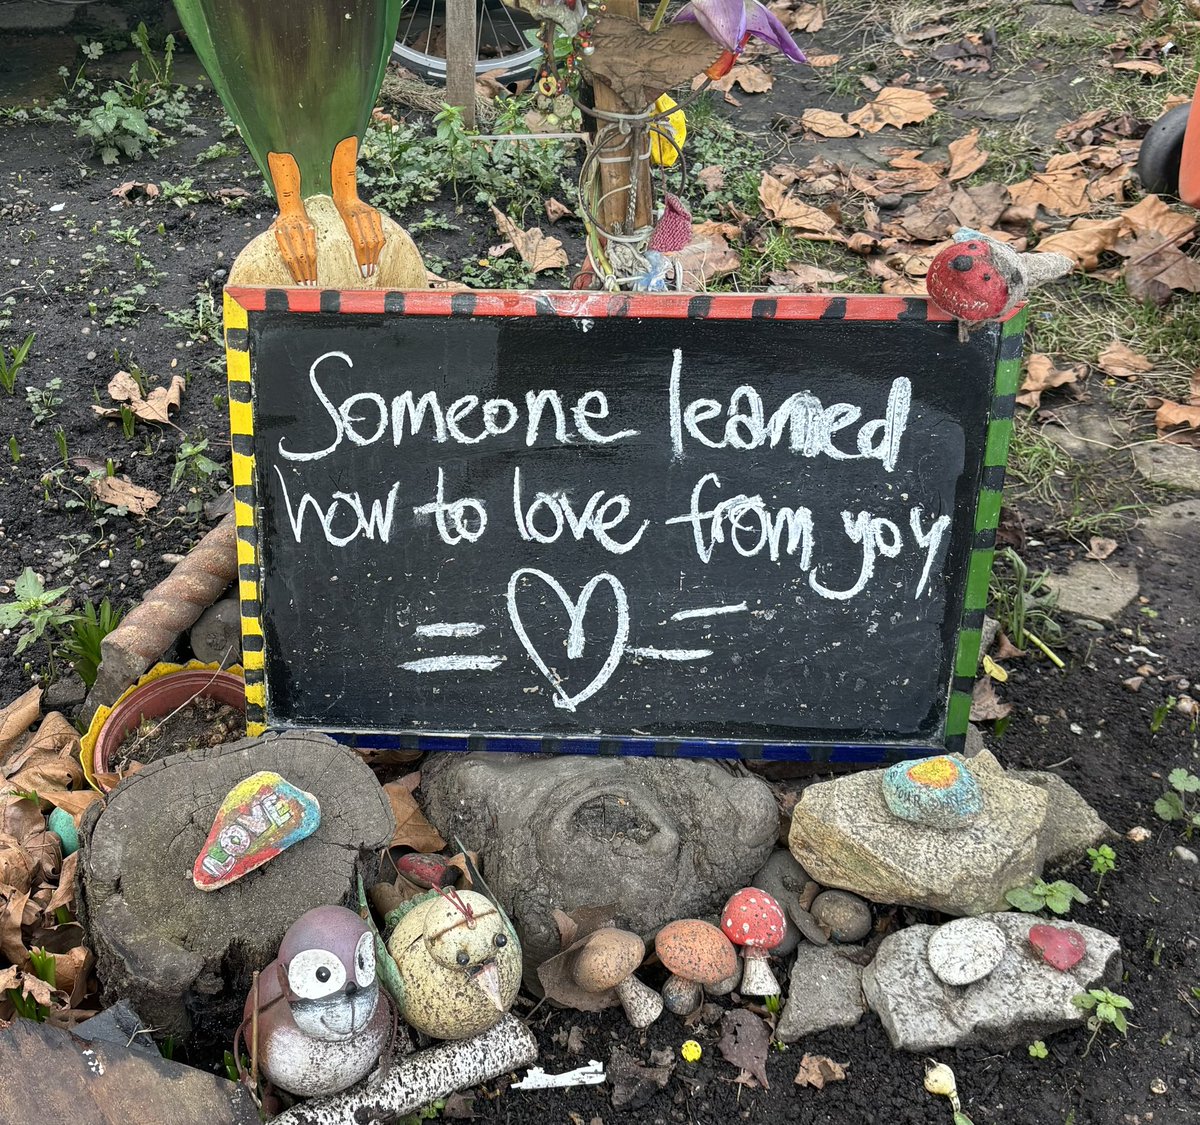 Someone learned
how to love from you
LOVE
YOUR